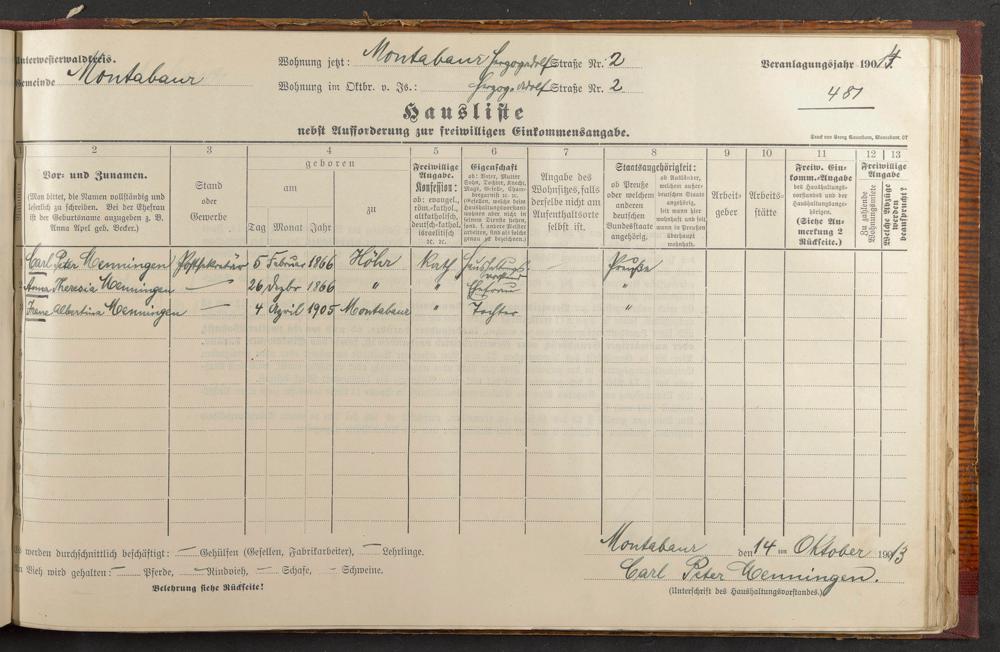 Unterwesterwaldkreis.
Gemeinde Montabaur
Wohnung jetzt: Montabaur Herzogadolf Straße Nr. 2
Wohnung im Oktbr. v. Js.: Herzog Adolf Straße Nr. 2
Veranlagungsjahr 1914
481
Hausliste
nebst Aufforderung zur freiwilligen Einkommensangabe.
2 3 4 5 6 7 8 9 10 11 12 13
Vor- und Zunamen.
(Man bittet, die Namen vollständig und leserlich zu schreiben. Bei der Ehefrau ist der Geburtsname anzugeben z. B. Anna Apel geb. Becker.)
Stand oder Gewerbe
geboren
am
Tag Monat Jahr
zu
Freiwillige Angabe. Konfession:
ob: evangel., röm.-kathol., altkatholisch, deutsch-kathol. israelitisch ꝛc. ꝛc.
Eigenschaft
ob: Vater, Mutter Sohn, Tochter, Knecht, Magd,
Angabe des Wohnsitzes, falls derselbe nicht am Aufenthaltsorte selbst ist.
Staatsangehörigkeit:
ob Preuße oder welchem anderen deutschen Bundesstaate angehörig.
ob Ausländer, welchem außerdeutschen Staate angehörig, seit wann hier wohnhaft und seit wann in Preußen überhaupt wohnhaft.
Arbeitgeber
Arbeitsstätte
Freiw. Einkomm.-Angabe
des Haushaltungsvorstandes und der Haushaltungsangehörigen.
(Siehe Anmerkung 2 Rückseite.)
Freiwillige Angabe
Zu zahlende Wohnungsmiete
Welche Abzüge werden beansprucht?
Carl Peter Menningen Postsekretär 5 Februar 1866 Höhr Kath Haushaltungsvorstand — Preuße
Anna Theresia Menningen — 26 Dezbr 1866 " " Ehefrau "
Franz Albertina Menningen — 4 April 1905 Montabaur " Tochter "
Es werden durchschnittlich beschäftigt: — Gehülfen (Gesellen, Fabrikarbeiter), — Lehrlinge.
An Vieh wird gehalten: — Pferde, — Rindvieh, — Schafe, — Schweine.
Belehrung siehe Rückseite!
Montabaur den 14 ten Oktober 1913
Carl Peter Menningen.
(Unterschrift des Haushaltungsvorstandes.)